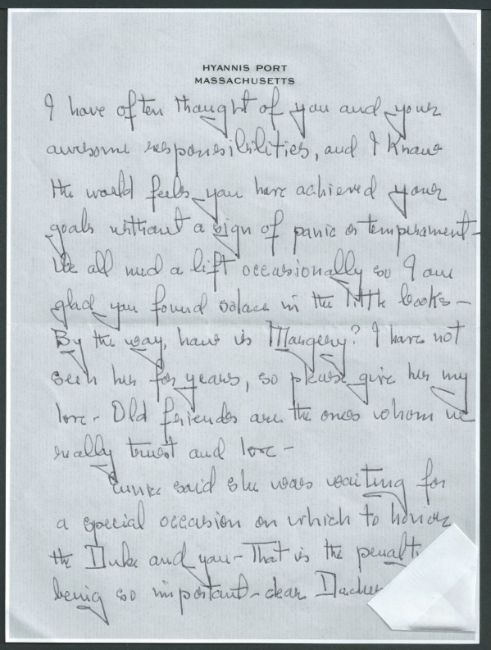 HYANNIS PORT
MASSACHUSETTS
I have often thought of you and your
awesome responsibilities, and I know
the world feels you have achieved your
goals without a sign of panic or temperament-
We all need a lift occasionally so I am
glad you found solace in the little books-
By the way, how is Margery? I have not
seen her for years, so please give her my
love- Old friends are the ones whom we
really trust and love-
Eunice said she was waiting for
a special occasion on which to honor
the Duke and you- That is the
being so important- dear